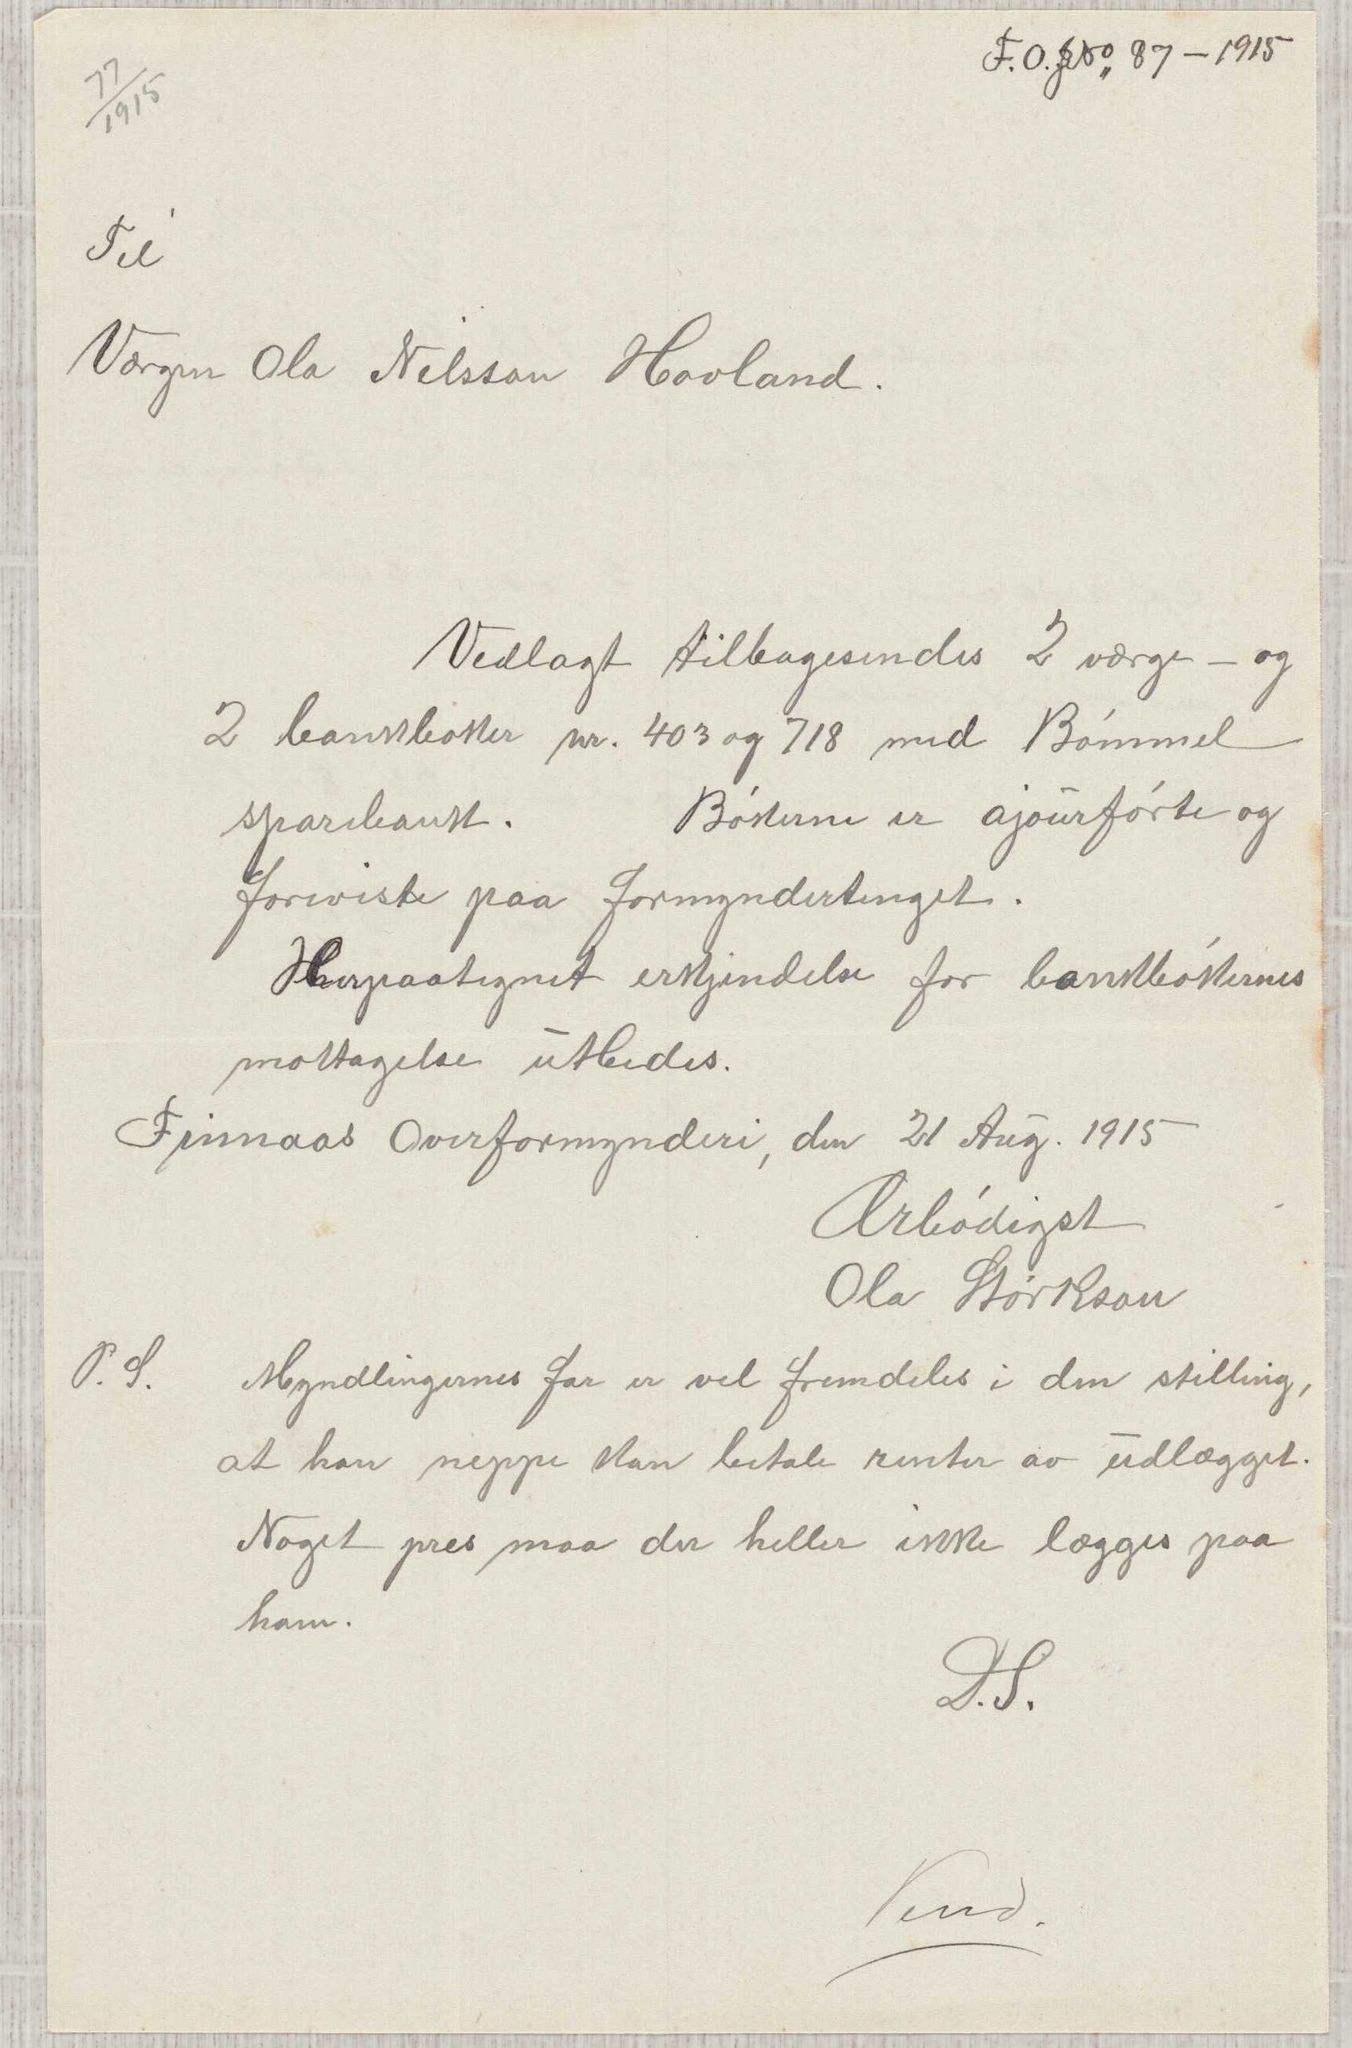 F.O. No 87 – 1915
77/1915
Til
Værgen Ola Nilsson Hovland.
Vedlagt tilbagesendes 2 værge – og
2 bankbøker nr. 403 og 718 med Bømmel
sparebank. Bøkerne er ajourførte og
foreviste paa formyndertinget.
Herpaategnet erkjendelse for bankbøkernes
mottagelse utbedes.
Finnaas Overformynderi, den 21 Aug. 1915
Ærbødigst
Ola Størkson
P.S. Myndlingernes far er vel fremdeles i den stilling,
at han neppe kan betale renter av udlægget.
Noget pres maa der heller ikke lægges paa
ham.
D.S.
Vend.